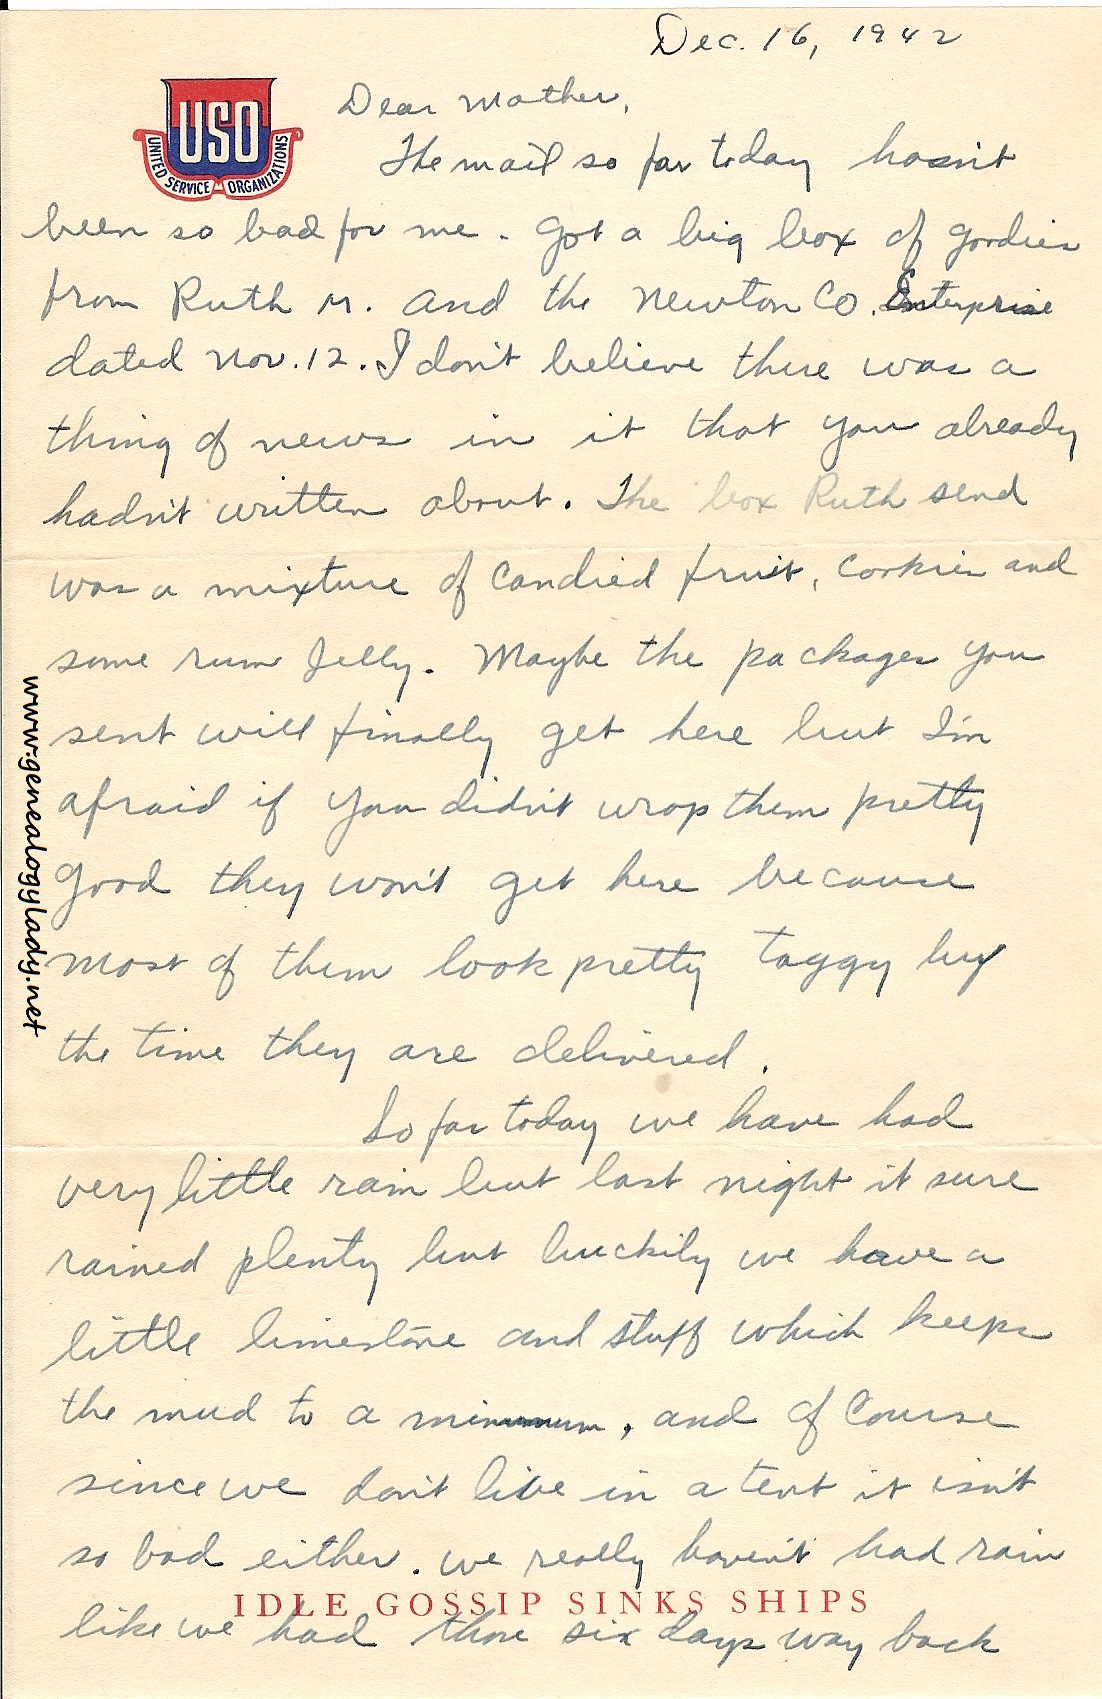 Dec. 16, 1942
USO
UNITED SERVICE ORGANIZATIONS
Dear Mother,
The mail so far today hasn't
been so bad for me. Got a big box of goodies
from Ruth M. and the Newton Co. Enterprise
dated Nov. 12. I don't believe there was a
thing of news in it that you already
hadn't written about. The box Ruth send
was a mixture of candied fruit, cookies and
some rum jelly. Maybe the packages you
sent will finally get here but I'm
afraid if you didn't wrap them pretty
good they won't get here because
most of them look pretty taggy by
the time they are delivered.
So far today we have had
very little rain but last night it sure
rained plenty but luckily we have a
little limestone and stuff which keeps
the mud to a minimum, and of course
since we don't live in a tent it isn't
so bad either. We really haven't had rain
IDLE GOSSIP SINKS SHIPS
like we had those six days way back
www.genealogylady.net